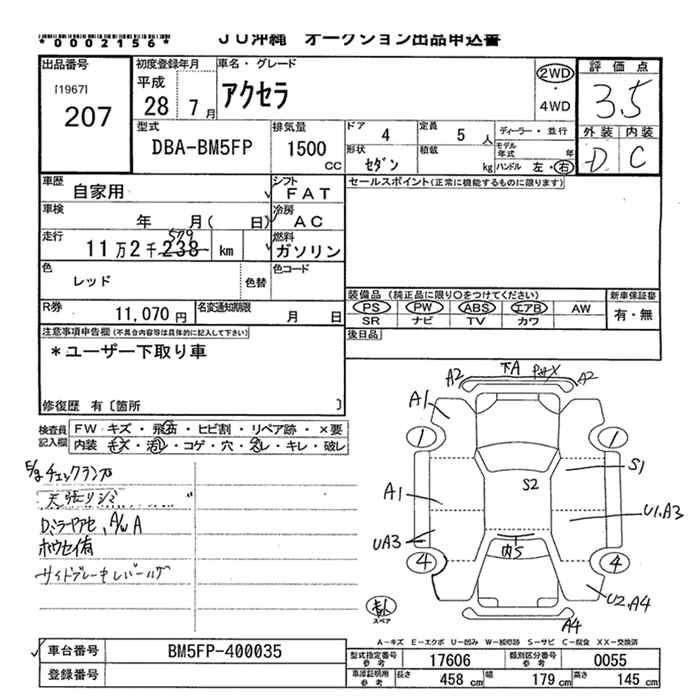 *0002156*
JU沖縄 オークション出品申込書
出品番号
[1967]
207
初度登録年月
平成
28 7月
車名・グレード
アクセラ
2WD
・
4WD
評価点
3.5
外装 内装
D C
型式
DBA-BM5FP
排気量
1500
CC
ドア 4
定員 5人
ディーラー・並行
形状
セダン
積載
kg
モデル年式 年
ハンドル 左・右
車歴
自家用
シフト
FAT
車検
年 月( 日)
冷房
AC
走行
579
11万2千238 km
燃料
ガソリン
色
レッド
色替
色コード
R券
11,070円
名変通知期限
月 日
セールスポイント(正常に機能するものに限ります)
装備品(純正品に限り○をつけてください)
新車保証書
PS PW ABS エアB AW
SR ナビ TV カワ
有・無
後日品
注意事項申告欄(不具合内容等は具体的に記入して下さい)
*ユーザー下取り車
修復歴 有〔箇所 〕
検査員
記入欄
FW キズ・飛石・ヒビ割・リペア跡・×要
内装 キズ・汚レ・コゲ・穴・スレ・キレ・破レ
チェックランプ
天張リシミ
Dミラーヤケ、A/W A
ホウセイ有
下A
A2
A2
A1
1
1
S1
S2
A1
U1.A3
UA3
内S
4
4
U2.A4
A4
スペア
A-キズ E-エクボ U-凹み W-補修跡 S-サビ C-腐食 XX-交換済
車台番号
BM5FP-400035
登録番号
型式指定番号
参考
17606
類別区分番号
参考
0055
車庫証明用
参考
長さ 458 cm
幅 179 cm
高さ 145 cm